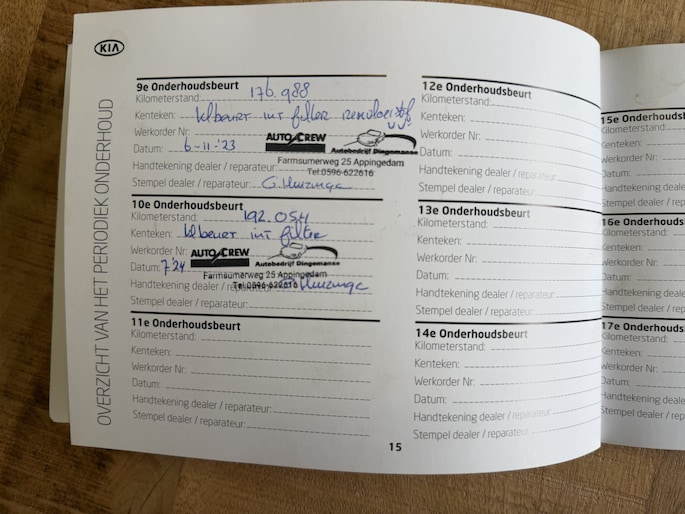 KIA
OVERZICHT VAN HET PERIODIEK ONDERHOUD
9e Onderhoudsbeurt
Kilometerstand: 176.988
Kenteken: klbeurt int filter remvloeistof
Werkorder Nr:
AUTO CREW Autobedrijf Dingemanse
Datum: 6-11-'23
Farmsumerweg 25 Appingedam
Handtekening dealer / reparateur:
Tel:0596-622616
Stempel dealer / reparateur: G. Huizinga
10e Onderhoudsbeurt
Kilometerstand: 192.054
Kenteken: klbeurt int filter
Werkorder Nr:
AUTO CREW Autobedrijf Dingemanse
Datum: 7'24
Farmsumerweg 25 Appingedam
Handtekening dealer / reparateur: G. Huizinga
Tel:0596-622616
Stempel dealer / reparateur:
11e Onderhoudsbeurt
Kilometerstand:
Kenteken:
Werkorder Nr:
Datum:
Handtekening dealer / reparateur:
Stempel dealer / reparateur:
12e Onderhoudsbeurt
Kilometerstand:
Kenteken:
Werkorder Nr.:
Datum:
Handtekening dealer / reparateur:
Stempel dealer / reparateur:
13e Onderhoudsbeurt
Kilometerstand:
Kenteken:
Werkorder Nr.:
Datum:
Handtekening dealer / reparateur:
Stempel dealer / reparateur:
14e Onderhoudsbeurt
Kilometerstand:
Kenteken:
Werkorder Nr.:
Datum:
Handtekening dealer / reparateur:
Stempel dealer / reparateur:
15
15e Onderhoudsb
Kilometerstand:
Kenteken:
Werkorder Nr.:
Datum:
Handtekening deale
Stempel dealer / re
16e Onderhouds
Kilometerstand:
Kenteken:
Werkorder Nr.:
Datum:
Handtekening deale
Stempel dealer / re
17e Onderhouds
Kilometerstand:
Kenteken:
Werkorder Nr.:
Datum:
Handtekening deal
Stempel dealer / r